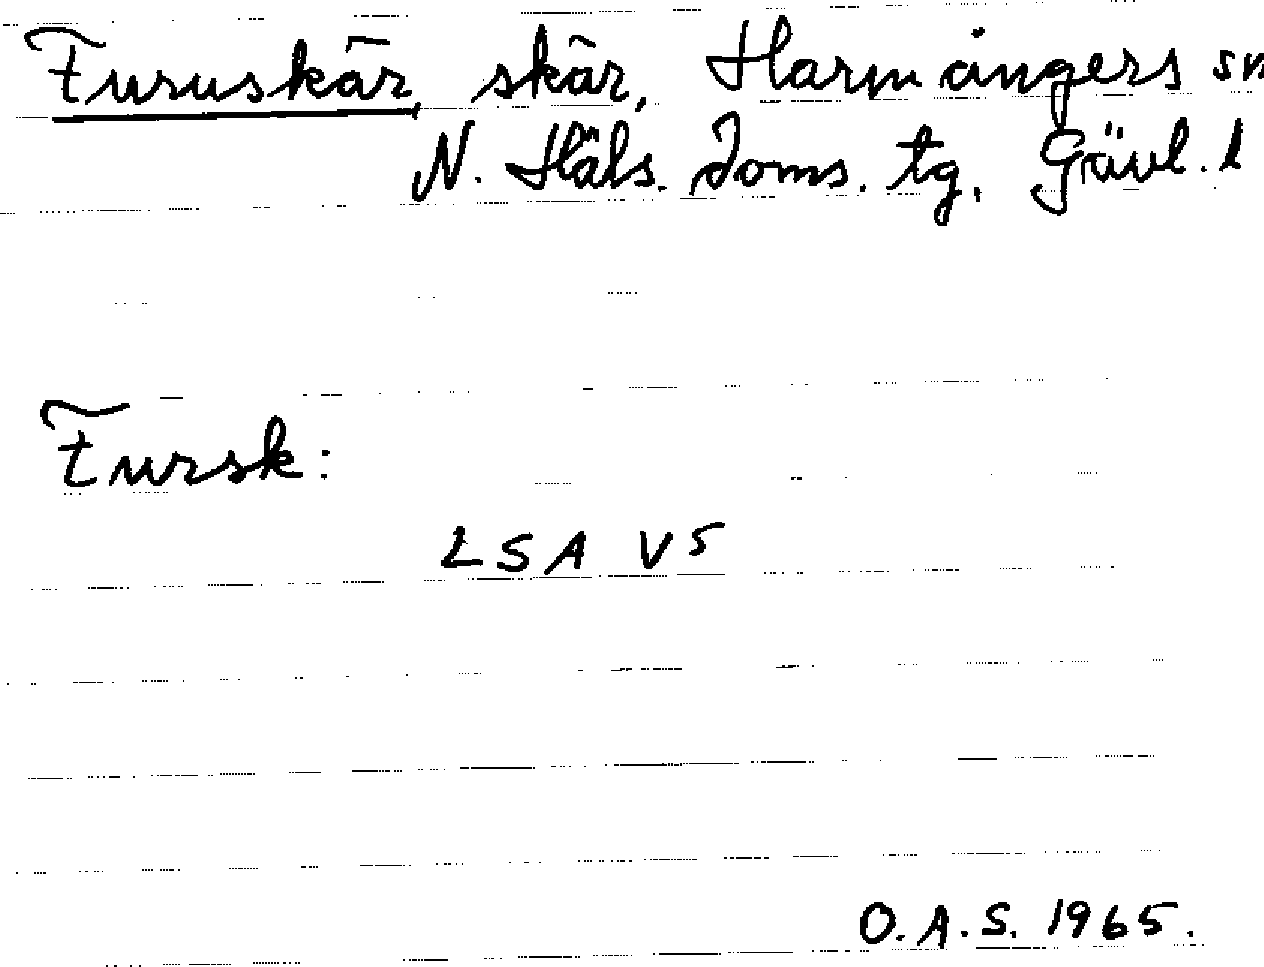 Furuskär, skär, Harmångers sn
N. Häls. Doms. tg. Gävl. l
Fursk:
LSA V5
O.A.S. 1965.